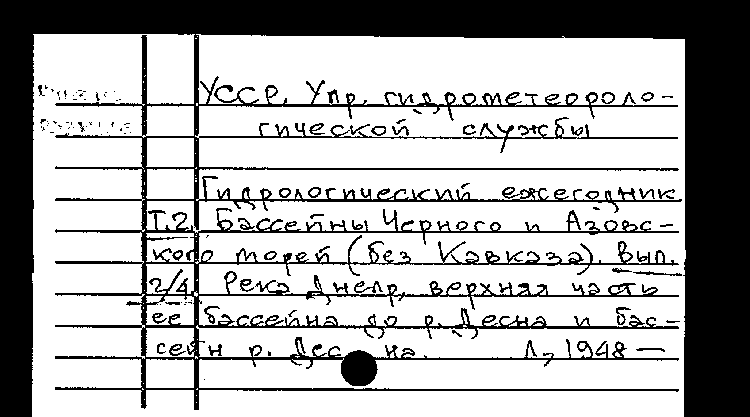 УССР. Упр. гидрометеороло-
гической службы
Гидрологический ежегодник.
Т.2. Бассейны Черного и Азовс-
кого морей (без Кавказа). Вып.
2/4. Река Днепр, верхняя часть
ее бассейна до р. Десна и бас-
сейн р. Десна. Л, 1948 —